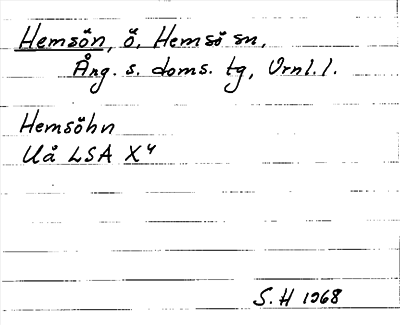 Hemsön, ö, Hemsö sn,
Ång. s. doms. tg, Vrnl. l.
Hemsöhn
Uå LSA X4
S. H 1968